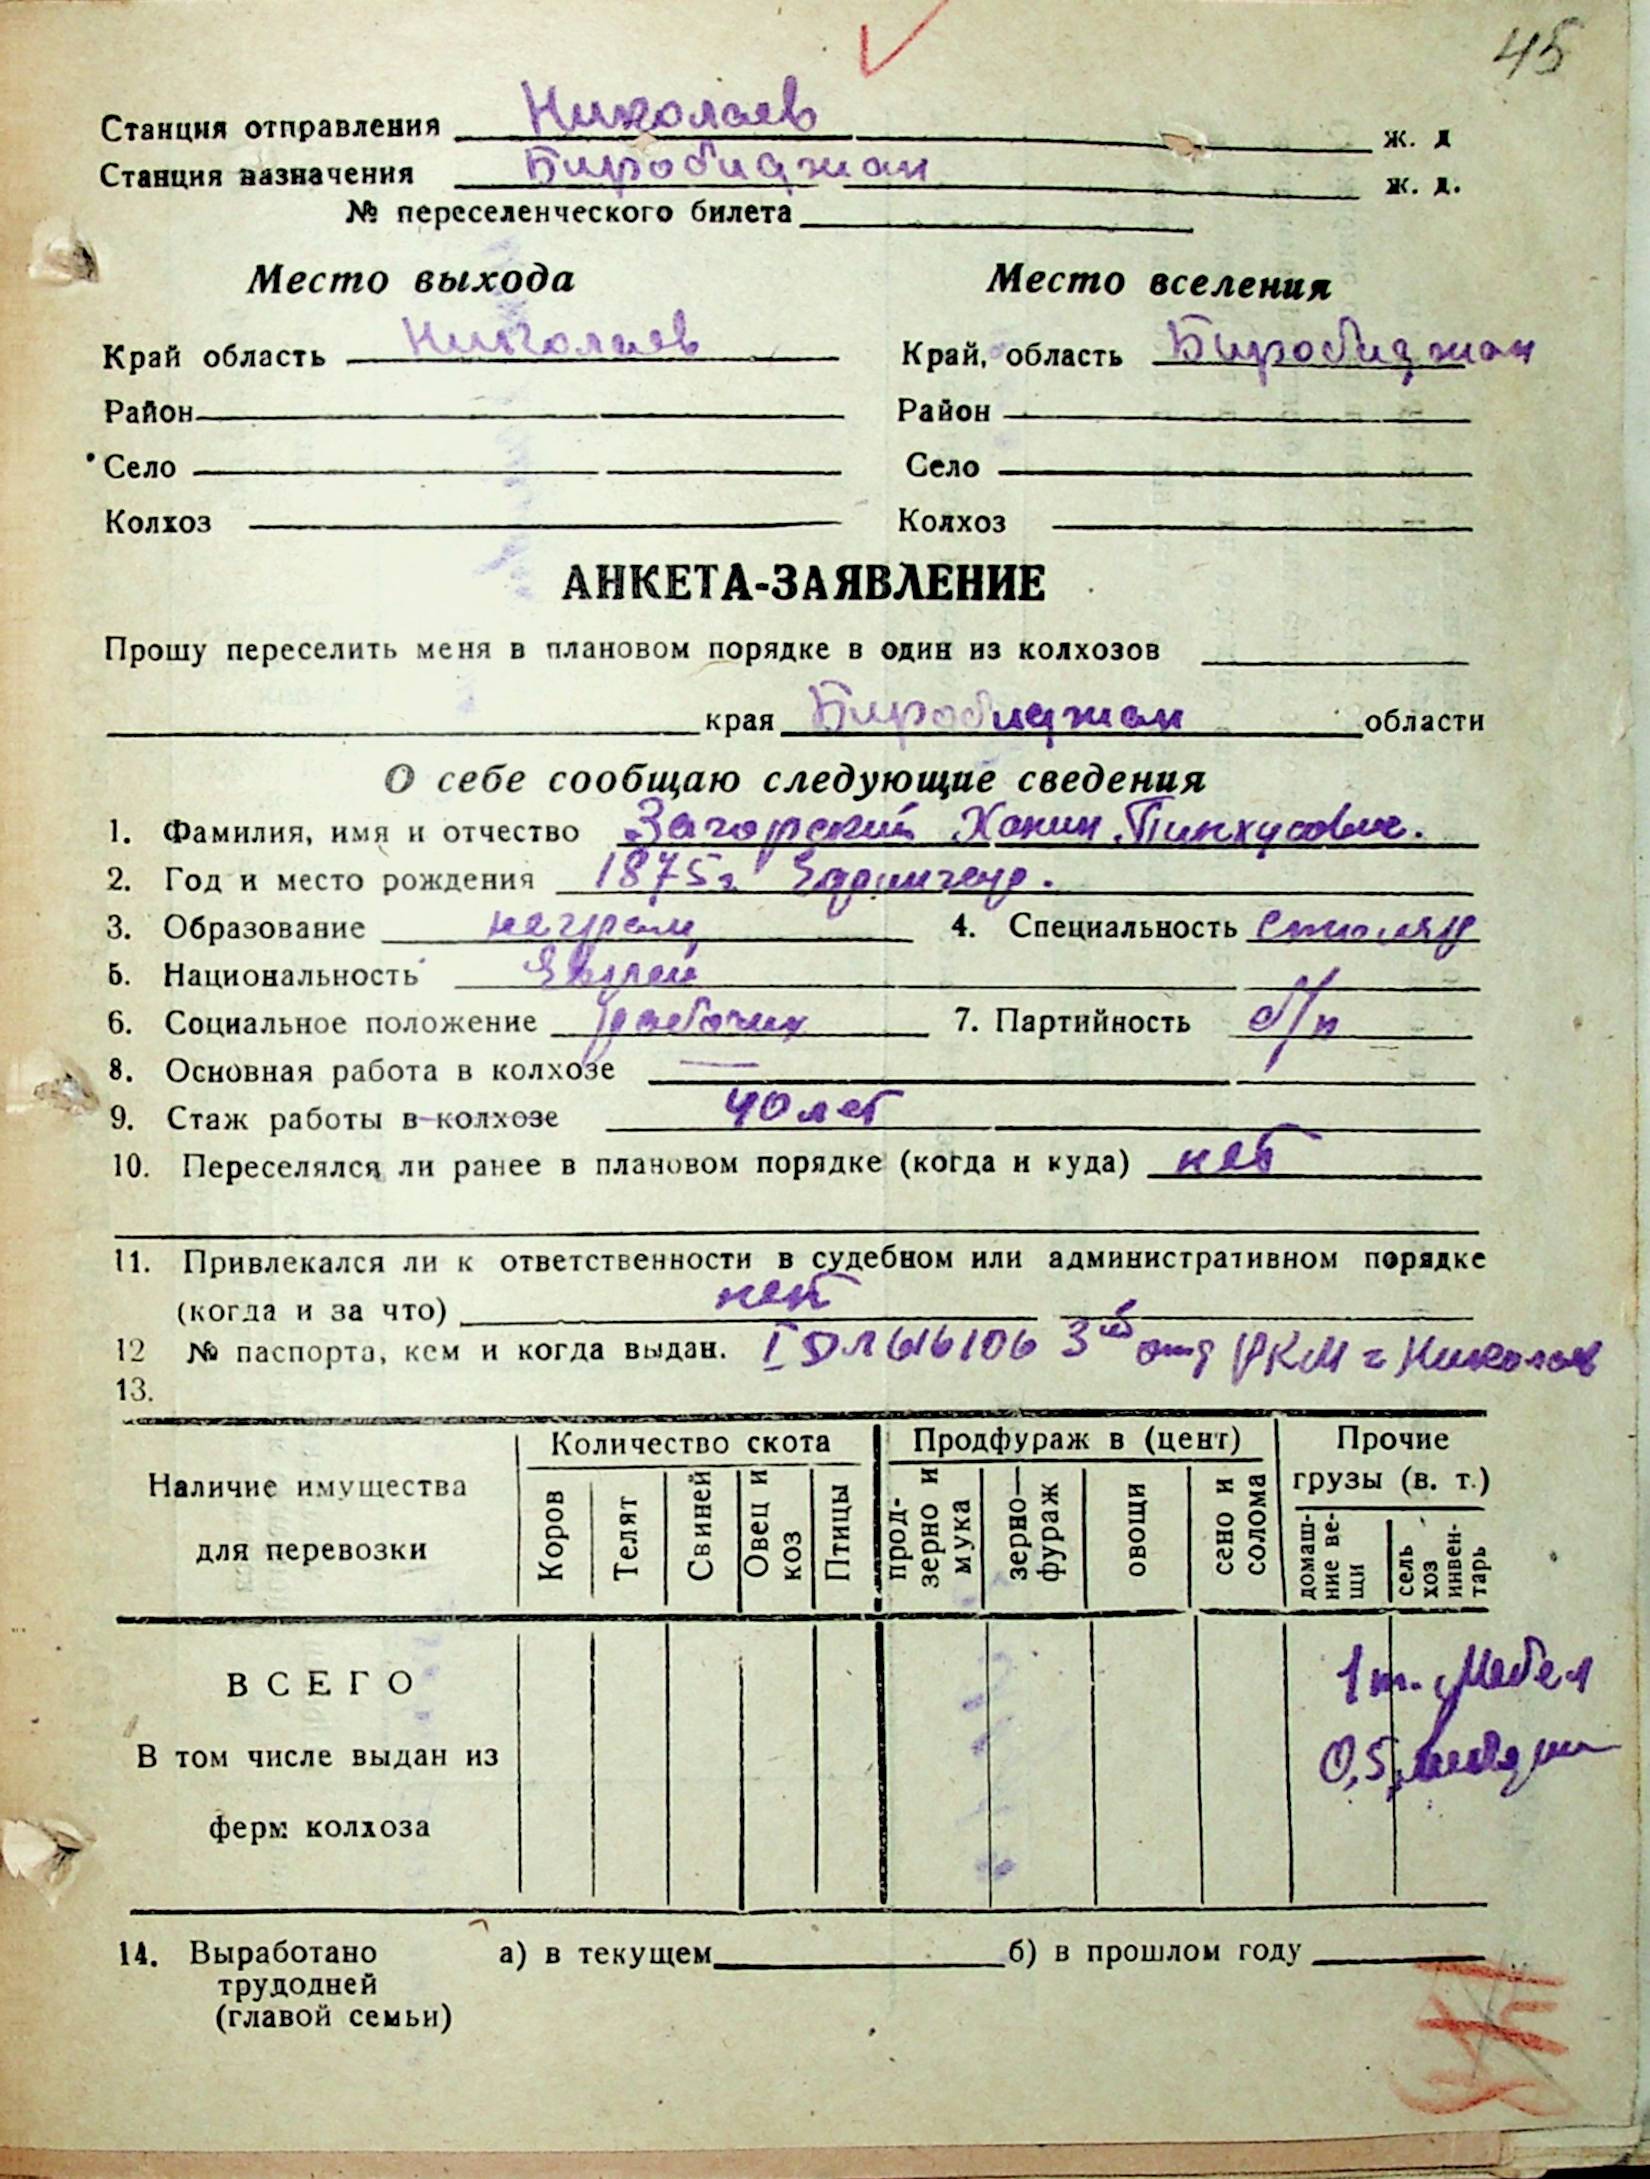 45
Станция отправления Николаев ж. д
Станция назначения Биробиджан ж. д.
№ переселенческого билета
Место выхода
Место вселения
Край область Николаев
Край, область Биробиджан
Район
Район
Село
Село
Колхоз
Колхоз
АНКЕТА-ЗАЯВЛЕНИЕ
Прошу переселить меня в плановом порядке в один из колхозов
края Биробиджан области
О себе сообщаю следующие сведения
1. Фамилия, имя и отчество Загорский Ханин Пинхусович.
2. Год и место рождения 1875 г
3. Образование неграм 4. Специальность столяр
5. Национальность Еврей
6. Социальное положение рабочих 7. Партийность б/п
8. Основная работа в колхозе —
9. Стаж работы в колхозе 40 лет
10. Переселялся ли ранее в плановом порядке (когда и куда) нет
11. Привлекался ли к ответственности в судебном или административном порядке
(когда и за что) нет
12 № паспорта, кем и когда выдан. 616106 3й отд РКМ г Николаев
13.
Наличие имущества
для перевозки
Количество скота
Коров
Телят
Свиней
Овец и
коз
Птицы
Продфураж в (цент)
прод-
зерно и
мука
зерно—
фураж
овощи
сено и
солома
Прочие
грузы (в. т.)
домаш-
ние ве-
щи
сель
хоз
инвен-
тарь
ВСЕГО
1 т. Мебел
В том числе выдан из
0,5
ферм колхоза
14. Выработано а) в текущем б) в прошлом году
трудодней
(главой семьи)